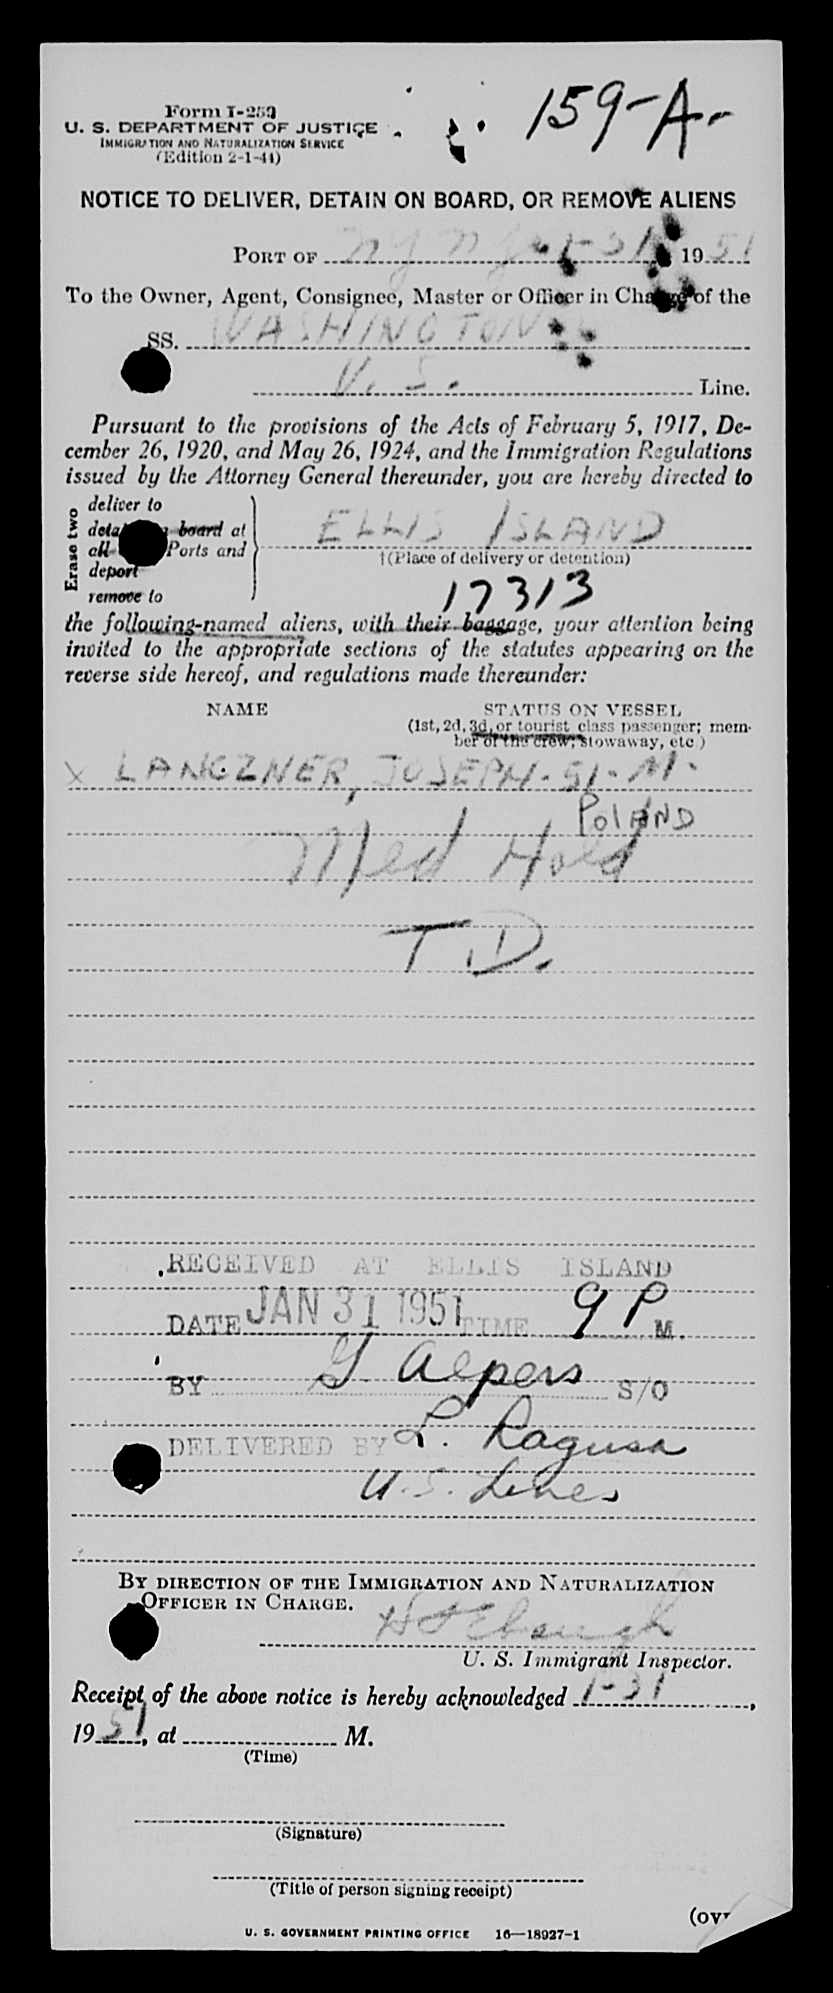 Form I-259
159-A-
U. S. DEPARTMENT OF JUSTICE
IMMIGRATION AND NATURALIZATION SERVICE
(Edition 2-1-44)
NOTICE TO DELIVER, DETAIN ON BOARD, OR REMOVE ALIENS
PORT OF NY NY 1-31 1951
To the Owner, Agent, Consignee, Master or Officer in Charge of the
SS. WASHINGTON
U. S. Line.
Pursuant to the provisions of the Acts of February 5, 1917, De-
cember 26, 1920, and May 26, 1924, and the Immigration Regulations
issued by the Attorney General thereunder, you are hereby directed to
Erase two
deliver to
board at
all Ports and
deport
remove to
ELLIS ISLAND
†(Place of delivery or detention)
17313
the following-named aliens, with their baggage, your attention being
invited to the appropriate sections of the statutes appearing on the
reverse side hereof, and regulations made thereunder:
NAME
STATUS ON VESSEL
(1st, 2d, 3d, or tourist class passenger; mem-
ber of the crew, stowaway, etc.)
X LANCZNER, JOSEPH - 51 - M.
POLAND
Med Hold
T.D.
RECEIVED AT ELLIS ISLAND
DATE JAN 31 1951 TIME 9 P M.
BY G. Alpers S/O
DELIVERED BY L. Ragusa
U.S. Lines
BY DIRECTION OF THE IMMIGRATION AND NATURALIZATION
OFFICER IN CHARGE.
U. S. Immigrant Inspector.
Receipt of the above notice is hereby acknowledged 1-31,
1951, at M.
(Time)
(Signature)
(Title of person signing receipt)
U. S. GOVERNMENT PRINTING OFFICE 16—18927-1